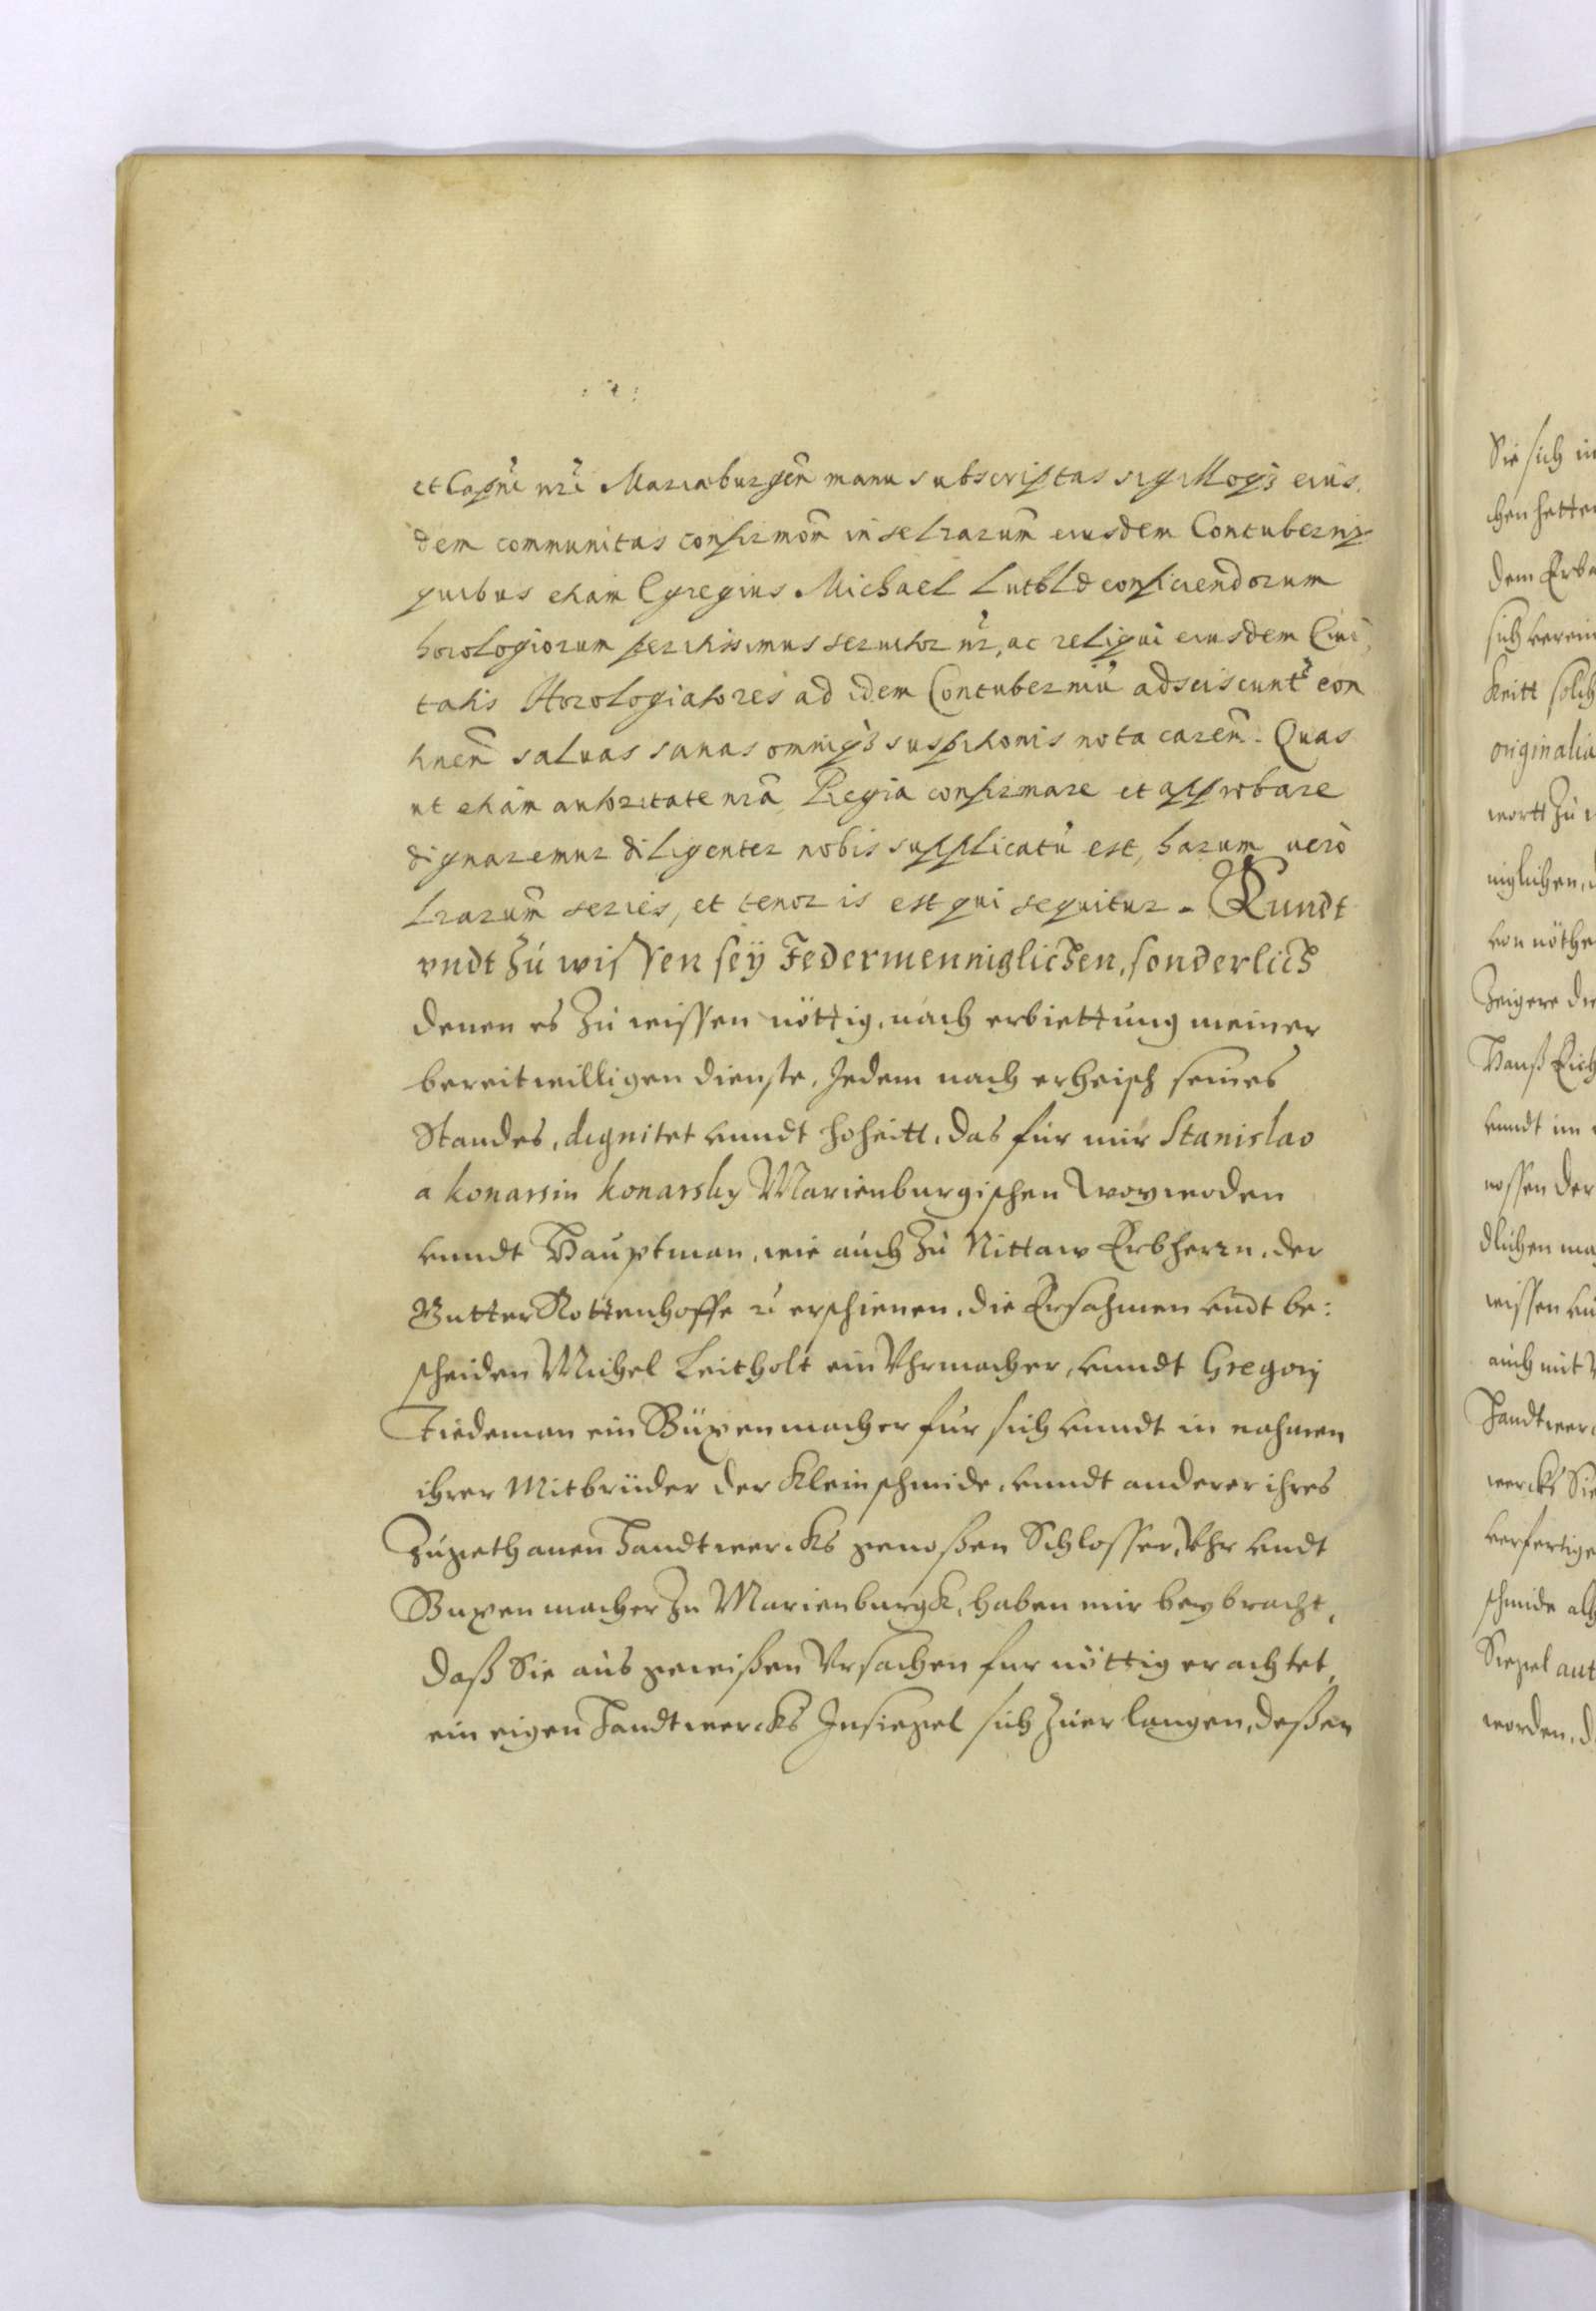 et Capn̄i nr̄i Mariæburgen̄ manu subscriptas sigilloq̢ eius,
dem communitas confirmōm in se lr̄arum eiusdem Contubernij
quibus etiam Egregius Michael Lutbld conficiendorum
horologiorum peritissimus seruitor nr̄, ac reliqui eiusdem Ciui,
tatis Horologiatores ad idem Contuberniū adsciscunt̄ con
tinen̄ saluas sanas omniq̢ suspitionis nota caren̄. Quas
ut etiam autoritate nr̄a Regia confirmare et approbare
dignaremur diligenter nobis supplicatū est, harum uerò
lr̄arum series, et tenor is est qui sequitur. Kundt
vndt zú wissen sey Jedermenniglichen, sonderlich
denen es zú wissen nöttig, nach erbiettúng meiner
bereitwilligen dienste, Jedem nach erheisch seines
Standes, dignitet vnndt hoheitt, das für mir Stanislao
a konarsin konarsky Marienburgischen Woywoden
vnndt Haúptman, wie aúch zú Nittaw Erbherrn, der
Gutter Kottenhoffe zc erschienen, die Ersahmen vndt be:
scheiden Michel Leitholt ein Vhrmacher, vnndt Gregorij
Tiedeman ein Büxenmacher für sich vnndt in nahmen
ihrer Mitbrüder der Kleinschmide, vnndt anderer ihres
zúgethanen Handtwercks genoßen Schlosser, Vhr vndt
Buxenmacher zu Marienburgk, haben mir beybracht,
daß Sie aús gewißen Vrsachen fur nöttig erachtet,
ein eigen Handtwercks Insiegel sich zúerlangen, deßen
Sie sich
chen hetten
dem
sich
solch
originalia
wortt zú
niglichen,
von nöthe
Zeigere
Hanß
vnndt im
nossen der
dlichen
wissen
aúch mit
Handtwerc
wercks Sie
verfertige
schmide
Siegel aut
worden,